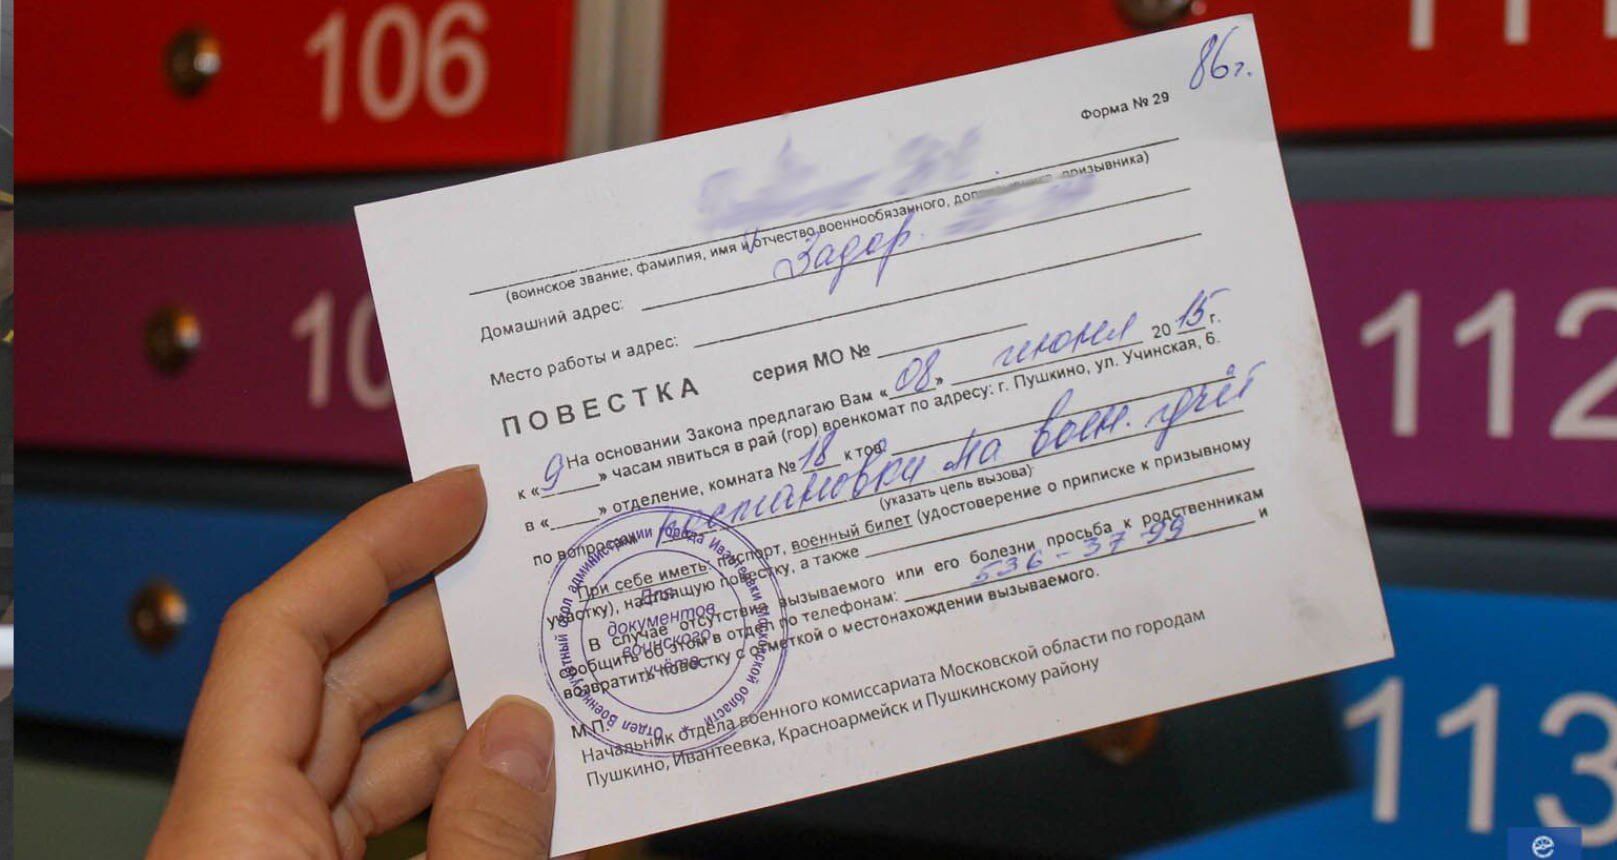 106
11
10
112
113
86г.
Форма № 29
(воинское звание, фамилия, имя и отчество военнообязанного, призывника)
Домашний адрес: Задор.
Место работы и адрес:
ПОВЕСТКА серия МО №
На основании Закона предлагаю Вам «08» июня 2015 г.
к «9» часам явиться в рай (гор) военкомат по адресу: г. Пушкино, ул. Учинская, 6.
в «____» отделение, комната № 18 к тов.
по вопросам постановки на воен. учёт
(указать цель вызова)
При себе иметь: паспорт, военный билет (удостоверение о приписке к призывному
участку), настоящую повестку, а также
В случае отсутствия вызываемого или его болезни просьба к родственникам
сообщить об этом в отдел по телефонам: 536-37-99 и
возвратить повестку с отметкой о местонахождении вызываемого.
М.П.
Начальник отдела военного комиссариата Московской области по городам
Пушкино, Ивантеевка, Красноармейск и Пушкинскому району
Отдел Военно-учетный стол администрации города Ивантеевки Московской области
Для
документов
воинского
учёта